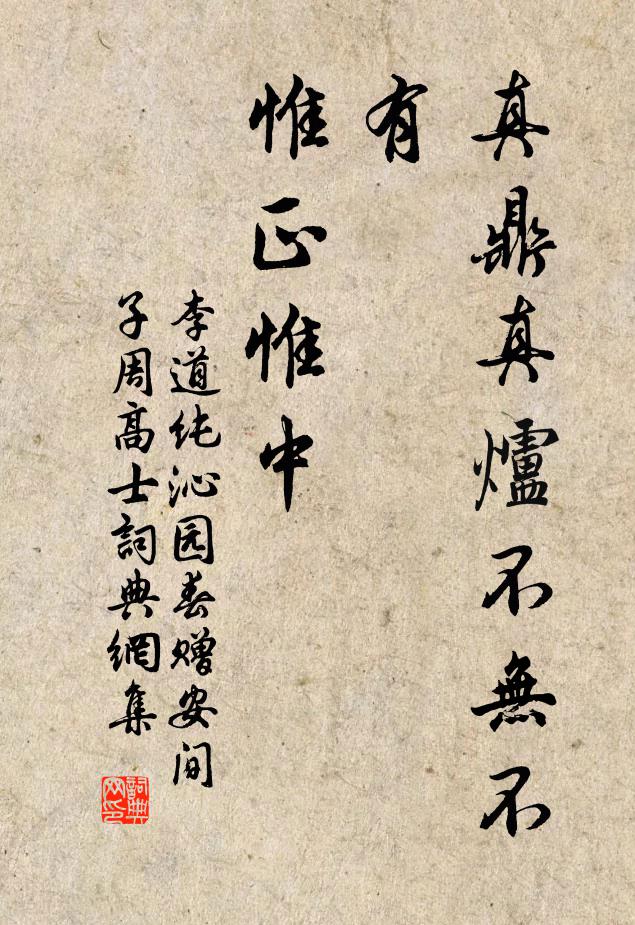 真鼎真爐不無不
有
惟正惟中
李道纯沁园春赠安间
子周高士詞典網集
詞典
网印